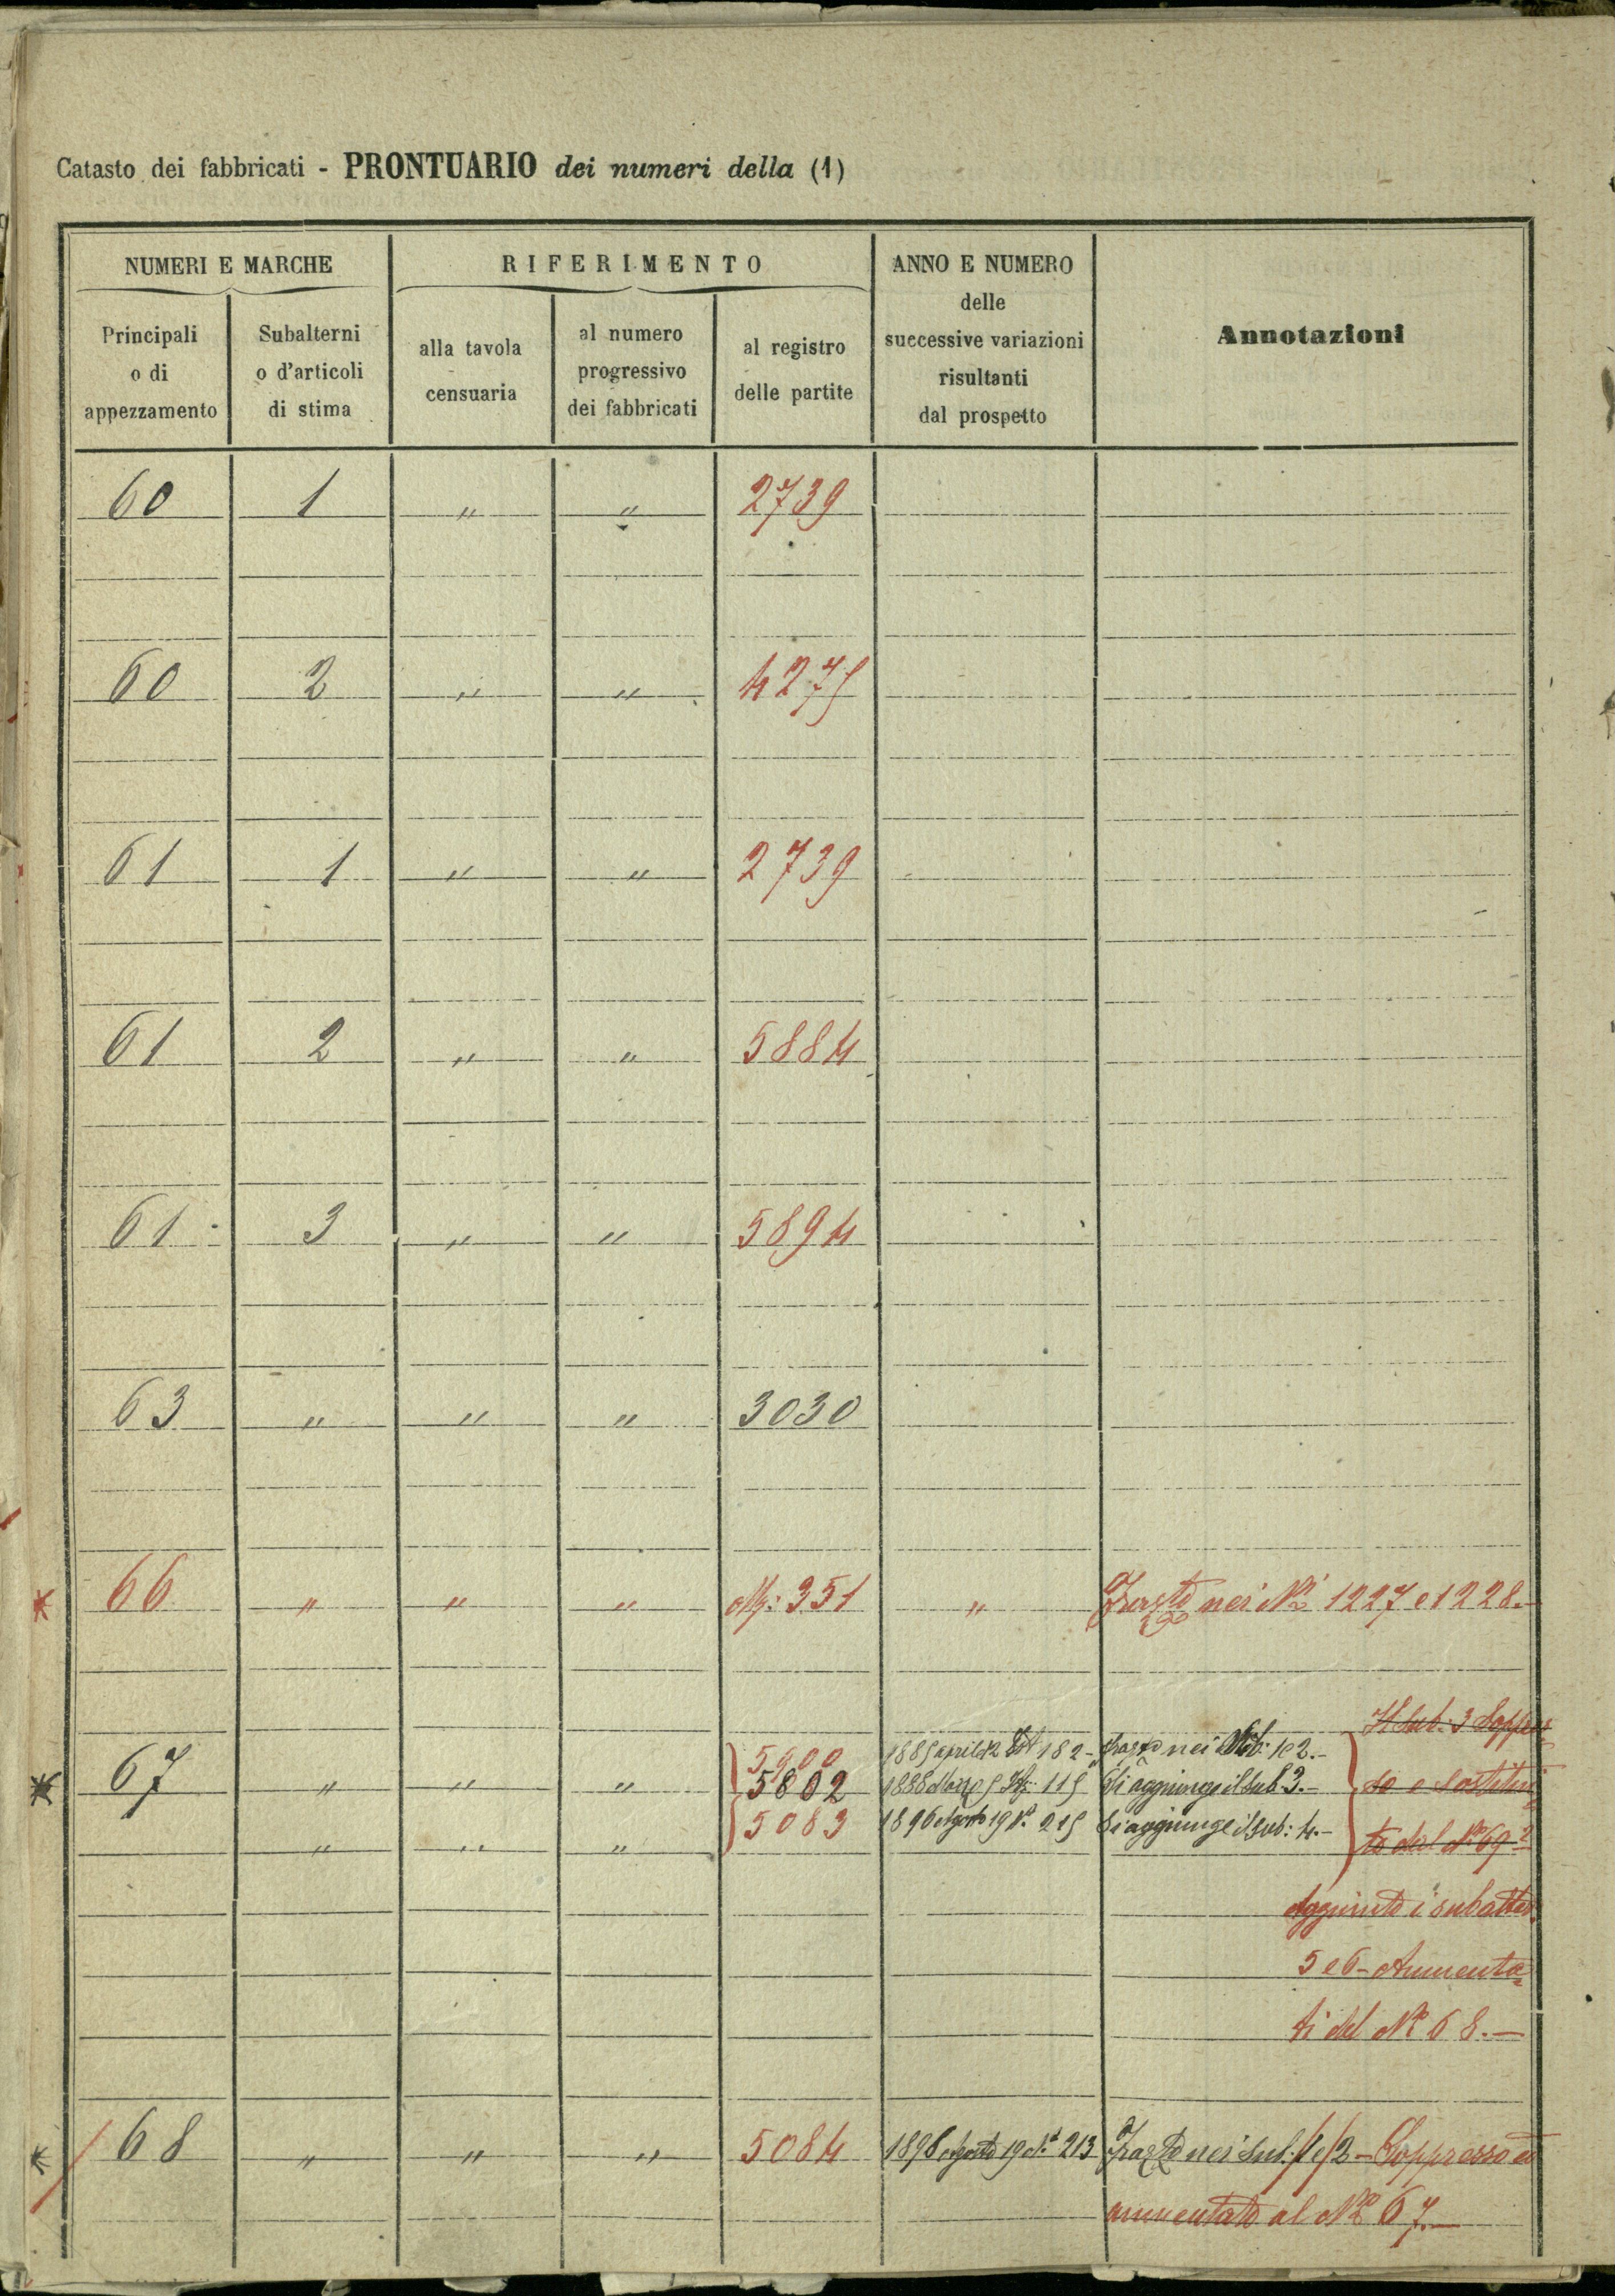 Catasto dei fabbricati - PRONTUARIO dei numeri della (1)
NUMERI E MARCHE
RIFERIMENTO
ANNO E NUMERO
delle
successive variazioni
risultanti
dal prospetto
Annotazioni
Principali
o di
appezzamento
Subalterni
o d'articoli
di stima
alla tavola
censuaria
al numero
progressivo
dei fabbricati
al registro
delle partite
60 1 " " 2739
60 2 " " 4275
61 1 " " 2739
61 2 " " 5884
61 3 " " 5894
63 " " " 3030
66 " " " 351 " nei Ni 1227 e 1228.-
Il sub: 3 Soppres
5900 1885 aprile 12 182 nei Sub: 1 e 2.-
67 " " " 5802 1888 Marzo 5 115 Si aggiunge il sub 3.- so e sostitui
" " " 5083 1896 Agosto 19 N° 215 Si aggiunge il sub: 4.- to dal N° 69 2
Aggiunto i subalter.
5 e 6 - Aumenta=
ti del N° 68.-
68 " " " 5084 1896 Agosto 19 N° 213 nei Sub. 1 e 2 - Soppresso ed
aumentato al N° 67.-